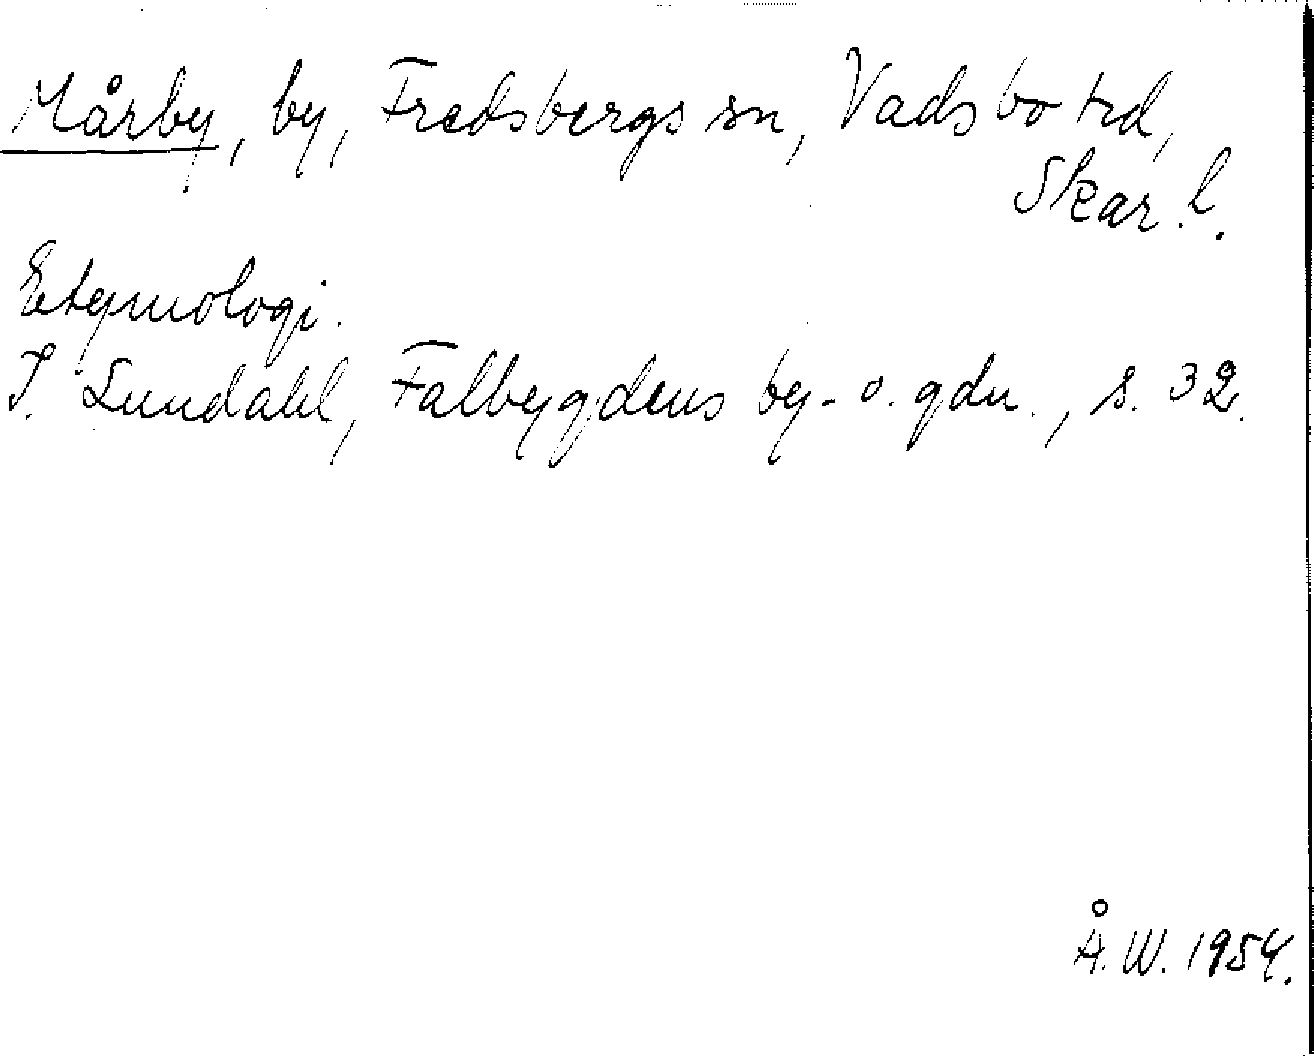 Mårby, by, Fredsbergs sn, Vadsbo hd,
Skar. l.
Etymologi.
I. Lundahl, Falbygdens by- o. gdn., s. 32.
Å. W. 1954.